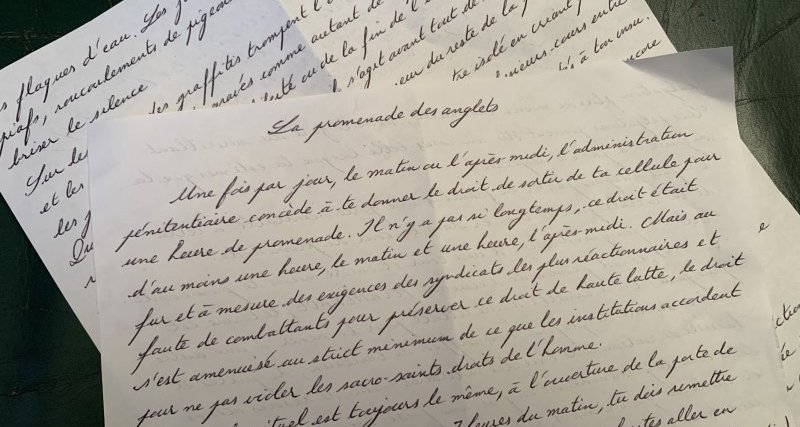 flaques d'eau. Les
piafs, roucoulements de
briser le silence
Sur les
et les
des graffitis trompent l'
gravés comme autant de
ou de la fin de l'
s'agit avant tout de
du reste de la
isolé en criant
cours entre
à ton insu.
encore
La promenade des anglets
Une fois par jour, le matin ou l'après-midi, l'administration
pénitentiaire concède à te donner le droit de sortir de ta cellule pour
une heure de promenade. Il n'y a pas si longtemps, ce droit était
d'au moins une heure, le matin et une heure, l'après-midi. Mais au
fur et à mesure des exigences des syndicats les plus réactionnaires et
faute de combattants pour préserver ce droit de haute lutte, le droit
s'est amenuisé au strict minimum de ce que les institutions accordent
pour ne pas violer les sacro-saints droits de l'homme.
est toujours le même, à l'ouverture de la porte de
heures du matin, tu dois remettre
aller en